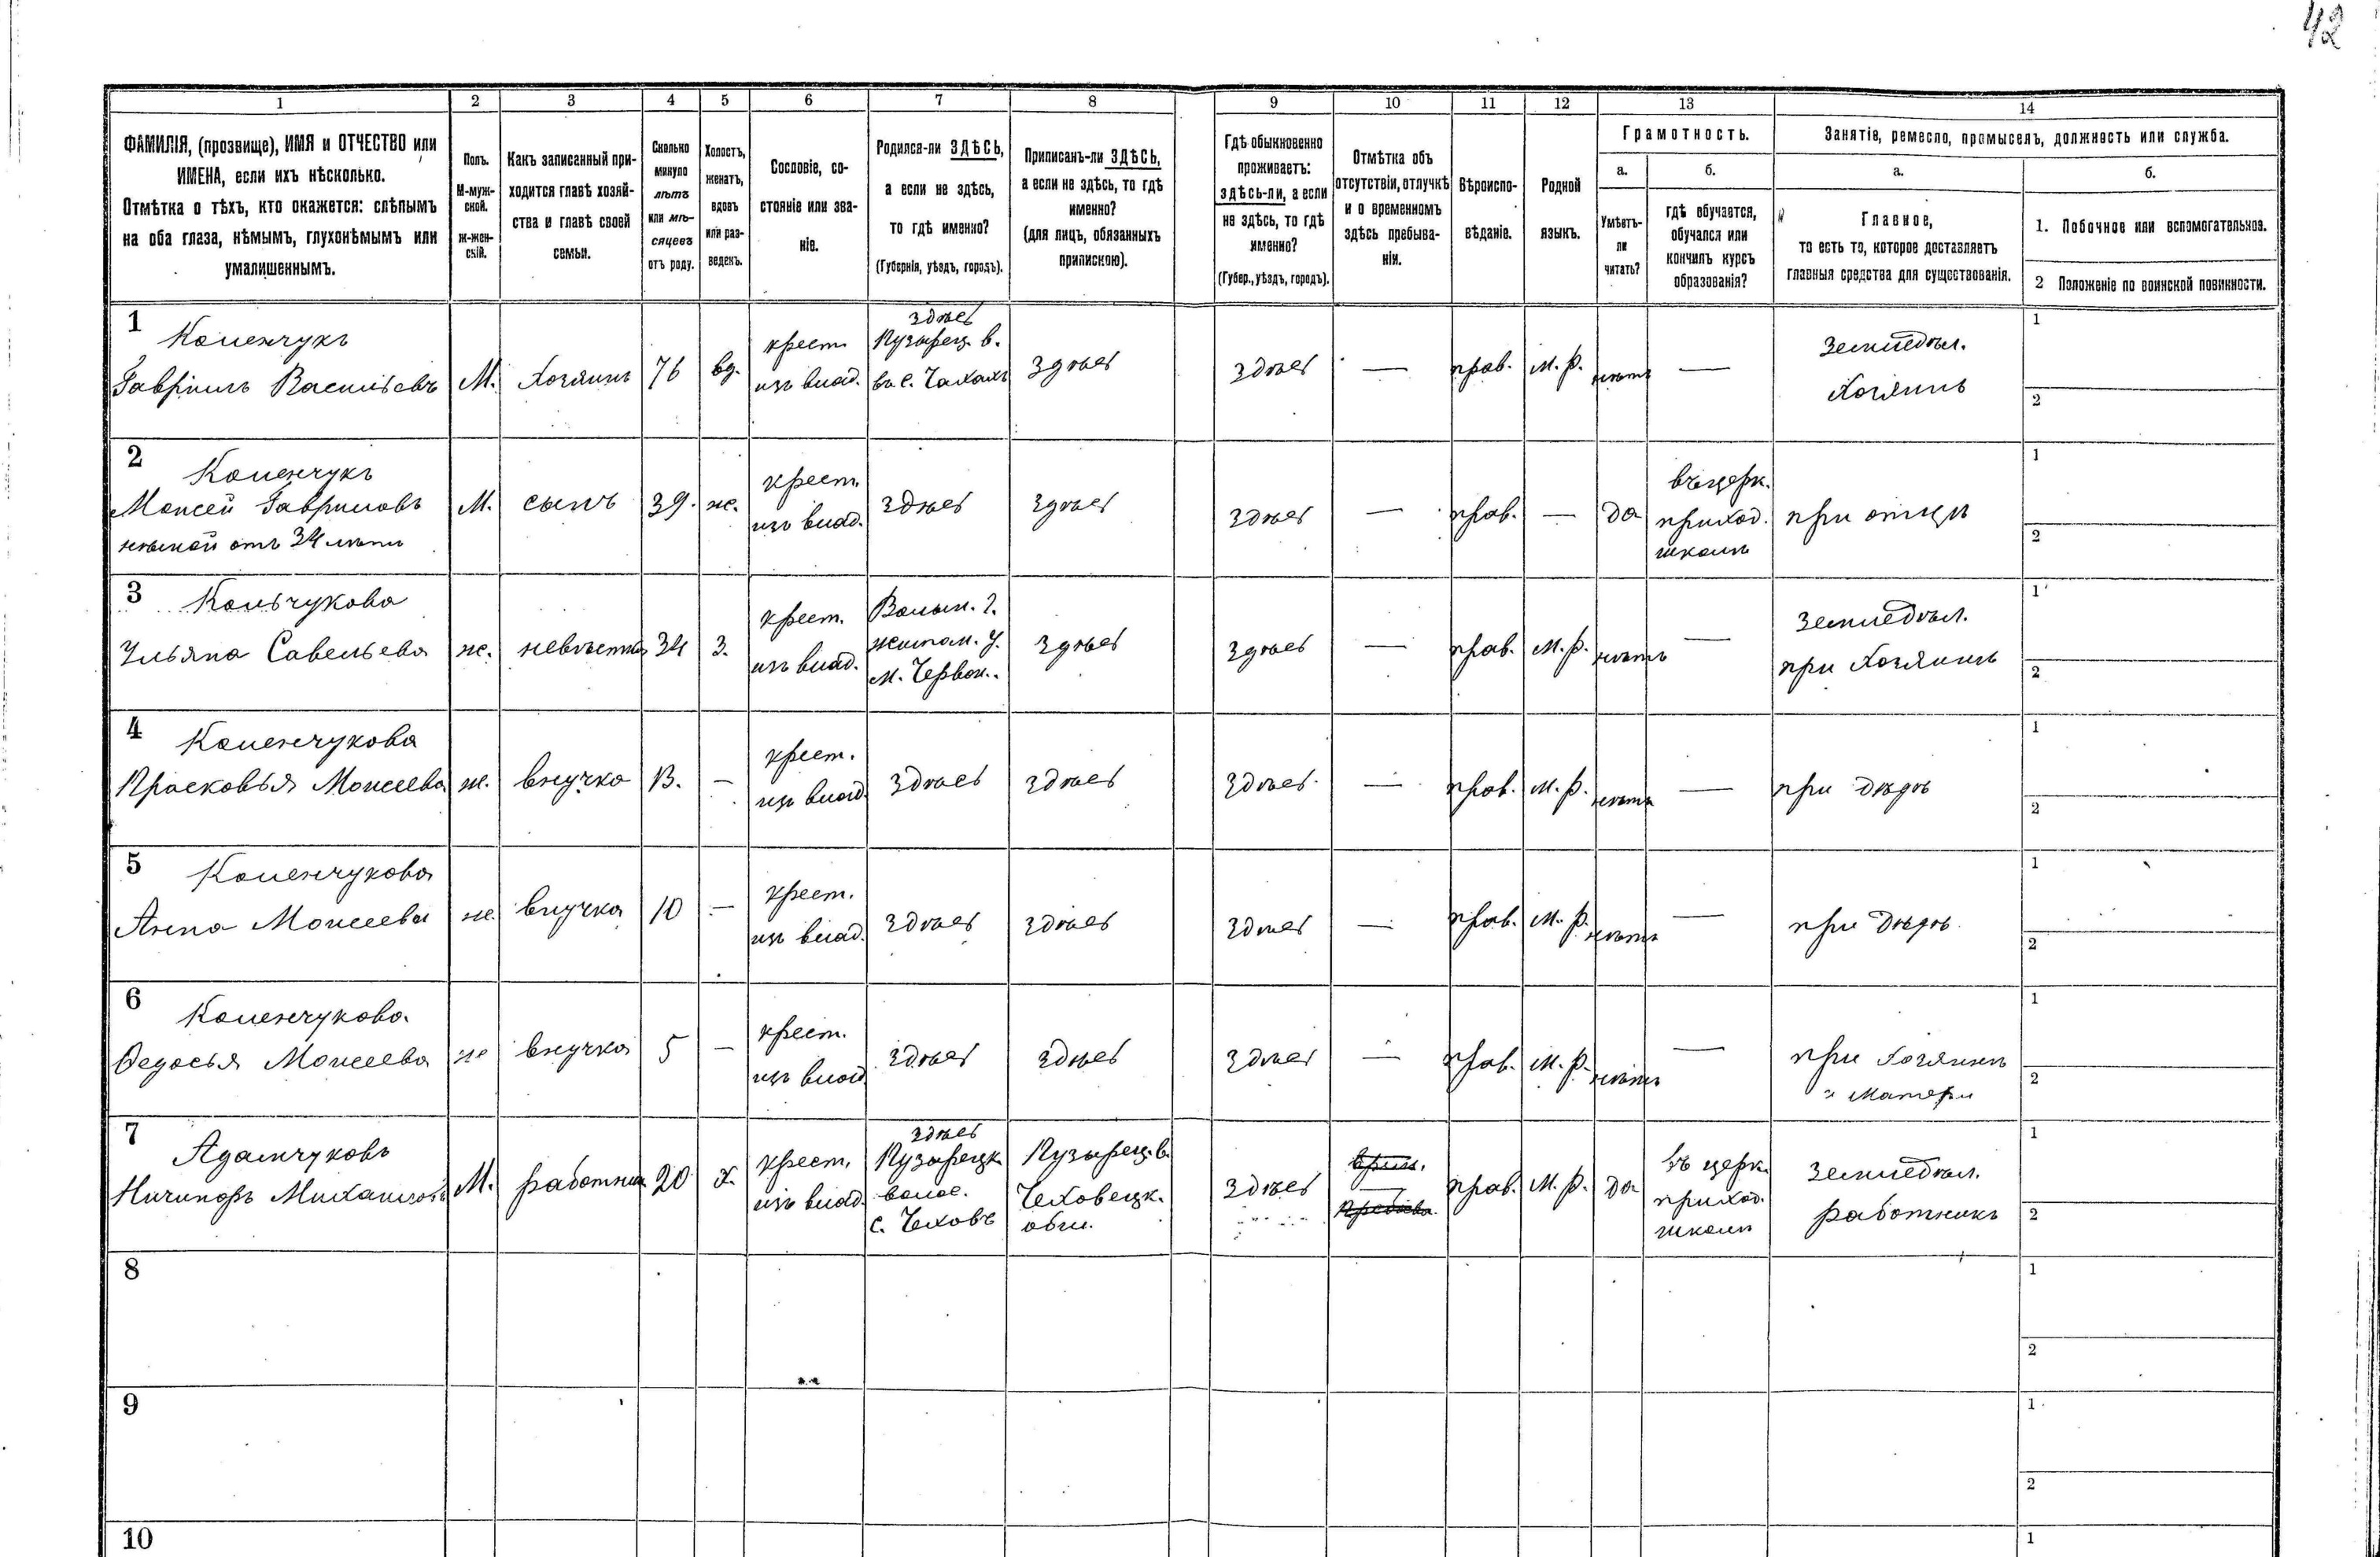 42
1 2 3 4 5 6 7 8 9 10 11 12 13 14
ФАМИЛІЯ, (прозвище), ИМЯ и ОТЧЕСТВО или
ИМЕНА, если ихъ нѣсколько.
Отмѣтка о тѣхъ, кто окажется: слѣпымъ
на оба глаза, нѣмымъ, глухонѣмымъ или
умалишеннымъ.
Полъ.
М-муж-
ской.
Ж-жен-
скій.
Какъ записанный при-
ходится главѣ хозяй-
ства и главѣ своей
семьи.
Сколько
минуло
лѣтъ
или мѣ-
сяцевъ
отъ роду.
Холостъ,
женатъ,
вдовъ
или раз-
веденъ.
Сословіе, со-
стояніе или зва-
ніе.
Родился-ли ЗДѢСЬ,
а если не здѣсь,
то гдѣ именно?
(Губернія, уѣздъ, городъ).
Приписанъ-ли ЗДѢСЬ,
а если не здѣсь, то гдѣ
именно?
(для лицъ, обязанныхъ
припискою).
Гдѣ обыкновенно
проживаетъ:
здѣсь-ли, а если
не здѣсь, то гдѣ
именно?
(Губер., уѣздъ, городъ).
Отмѣтка объ
отсутствіи, отлучкѣ
и о временномъ
здѣсь пребыва-
ніи.
Вѣроиспо-
вѣданіе.
Родной
языкъ.
Грамотность.
а.
Умѣетъ-
ли
читать?
б.
гдѣ обучается,
обучался или
кончилъ курсъ
образованія?
Занятіе, ремесло, промыселъ, должность или служба.
а.
Главное,
то есть то, которое доставляетъ
главныя средства для существованія.
б.
1. Побочное или вспомогательное.
2 Положеніе по воинской повинности.
1
Гавріилъ Васильевъ
М.
Хозяинъ
76
вд.
крест.
изъ влад.
здѣсь
Пузырец. в.
здѣсь
здѣсь
—
прав.
м. р.
нѣтъ
—
Земледѣл.
Хозяинъ
1
2
2
Моисей Гавриловъ
нѣмой отъ 34 лѣтъ
М.
сынъ
39.
ж.
крест.
изъ влад.
здѣсь
здѣсь
здѣсь
—
прав.
—
да
въ церк.
приход.
школѣ
при отцѣ
1
2
3
Ульяна Савельева
ж.
невѣстка
34
З.
крест.
изъ влад.
Волын. г.
житом. у.
м. Червон.
здѣсь
здѣсь
—
прав.
м. р.
нѣтъ
—
Земледѣл.
при Хозяинѣ
1
2
4
Прасковья Моисеева
ж.
внучка
13.
—
крест.
изъ влад.
здѣсь
здѣсь
здѣсь
—
прав.
м. р.
нѣтъ
—
при дѣдѣ
1
2
5
Анна Моисеева
ж.
внучка
10
—
крест.
изъ влад.
здѣсь
здѣсь
здѣсь
—
прав.
м. р.
нѣтъ
—
при дѣдѣ
1
2
6
Ѳедосья Моисеева
ж
внучка
5
—
крест.
изъ влад.
здѣсь
здѣсь
здѣсь
—
прав.
м. р.
нѣтъ
—
при Хозяинѣ
и Матери
1
2
7
Адамчуковъ
Ничипоръ Михайловъ
М.
работник
20
х.
крест.
изъ влад.
здѣсь
Пузырецк.
волос.
с. Чеховъ
Пузырец. в.
Чеховецк.
общ.
здѣсь
прав.
м. р.
да
въ церк.
приход.
школѣ
Земледѣл.
работникъ
1
2
8
1
2
9
1
2
10
1